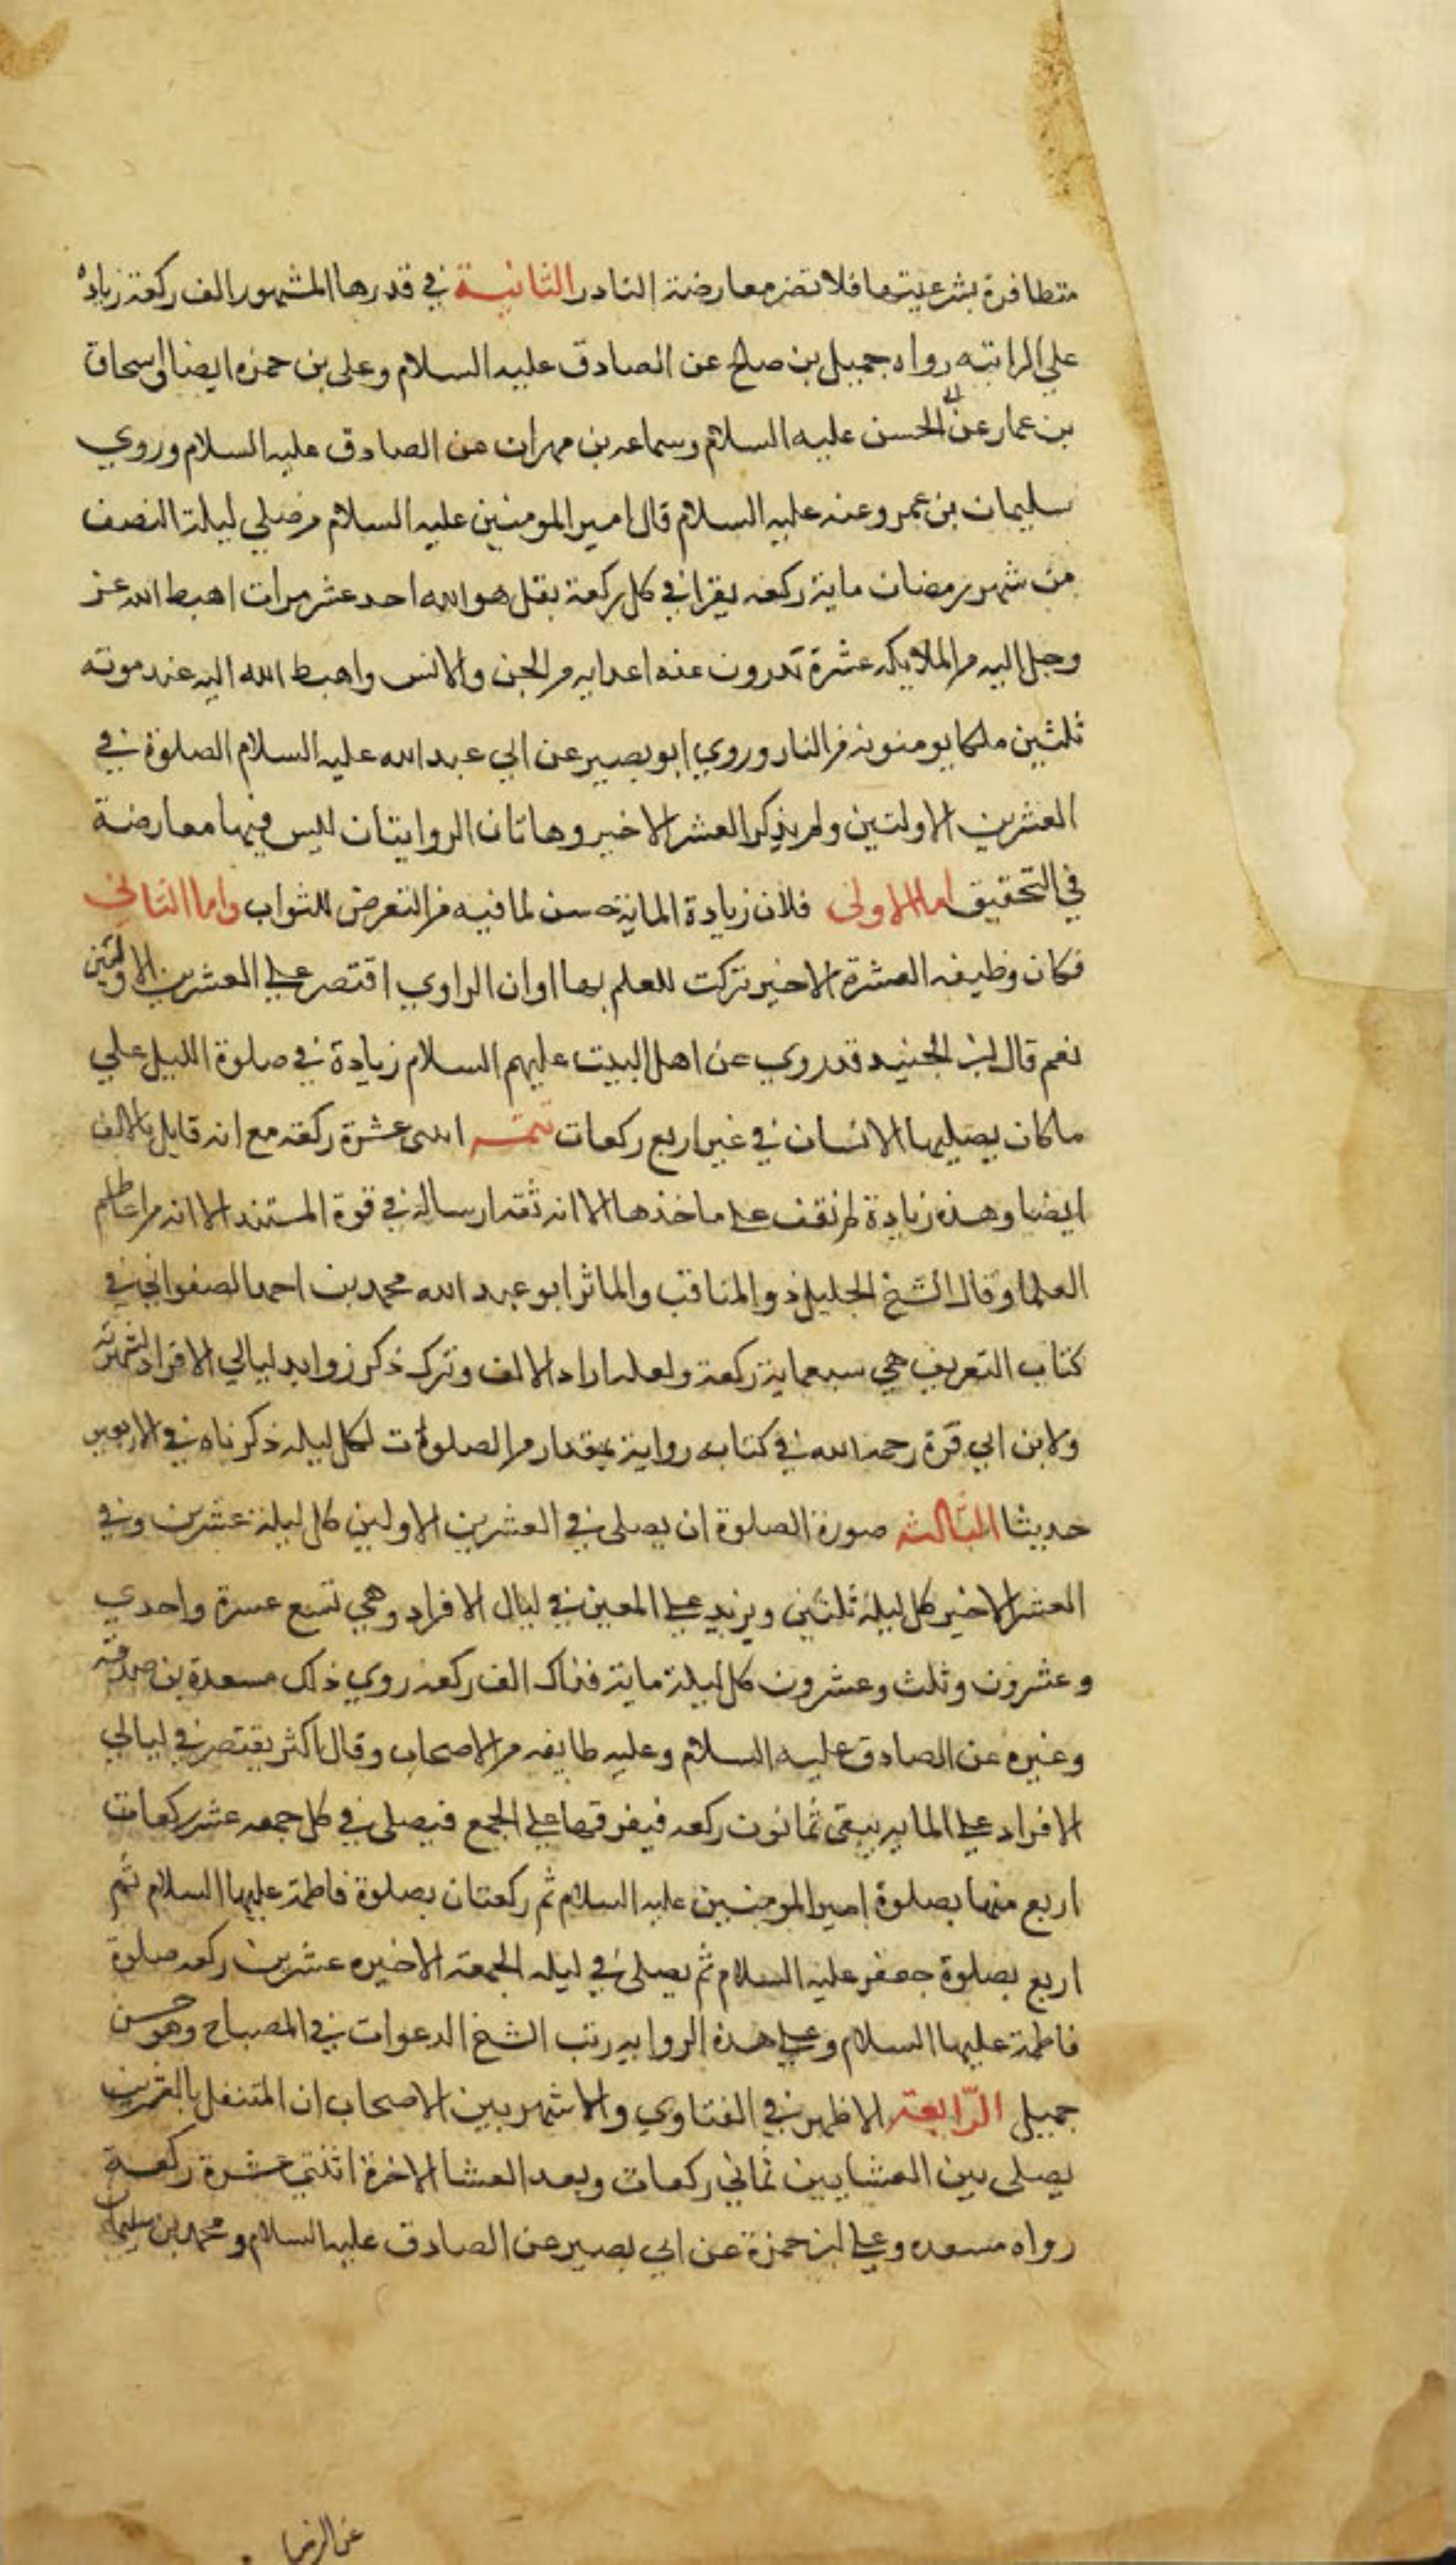 متظافرة بشرعيتها فلا تضر معارضة النادر الثانية في قدرها المشهور الف ركعة زيادة
على الراتبه رواه جميل بن صلح عن الصادق عليه السلام وعلى بن حمزه ايضا واسحاق
بن عمار عن ابى الحسن عليه السلام وسماعه بن مهران عن الصادق عليه السلام وروي
سليمان بن عمرو عنه عليه السلام قال امير المومنين عليه السلام من صلي ليلة النصف
من شهر رمضان ماية ركعه يقرا في كل ركعة بقل هو الله احد عشر مرات اهبط الله عز
وجل اليه من الملايكه عشرة يدرون عنه اعدايه من الجن والانس واهبط الله اليه عند موته
ثلثين ملكا يومنونه من النار وروي ابو بصير عن ابي عبد الله عليه السلام الصلوة في
العشرين الاولتين ولم يذكر العشر الاخير وهاتان الروايتان ليس فيها معارضة
في التحقيق اما الاولى فلان زيادة الماية حسن لما فيه من التعرض للثواب واما الثاني
فكان وظيفه العشرة الاخير تركت للعلم بها او ان الراوي اقتصر على العشرين الاولتين
نعم قال ابن الجنيد قد روي عن اهل البيت عليهم السلام زيادة في صلوة الليل علي
ما كان يصليها الانسان في غير اربع ركعات تتمه اثنى عشرة ركعة مع انه قايل بالالف
ايضا وهذه زيادة لم نقف على ماخذها الا انه ثقه ارساله في قوة المستند لا انه من اعاظم
العلما وقال الشيخ الجليل ذو المناقب والماثر ابو عبد الله محمد بن احمد الصفواني في
كتاب التعريف هي سبعماية ركعة ولعله اراد الالف وترك ذكر زوايد ليالي الافراد لشهرته
ولابن ابي قرة رحمه الله في كتابه رواية بمقدار من الصلوات لكل ليله ذكرناه في الاربعين
حديثا الثالثه صورة الصلوة ان يصلى في العشرين الاولين كل ليلة عشرين وفي
العشر الاخير كل ليلة ثلثين ويزيد على المعين في ليال الافراد وهي تسع عشرة واحدي
وعشرون وثلث وعشرون كل ليلة ماية فذلك الف ركعه روي ذلك مسعدة بن صدقة
وغيره عن الصادق عليه السلام وعليه طايفه من الاصحاب وقال الاكثر يقتصر في ليالي
الافراد على المايه يبقى ثمانون ركعه فيفرقها على الجمع فيصلى في كل جمعه عشر ركعات
اربع منها بصلوة امير المومنين عليه السلام ثم ركعتان بصلوة فاطمة عليها السلام ثم
اربع بصلوة جعفر عليه السلام ثم يصلى في ليله الجمعة الاخيره عشرين ركعه صلوة
فاطمة عليها السلام وعلى هذه الروايه رتب الشيخ الدعوات في المصباح وهو حسن
جميل الرابعة الاظهر في الفتاوي والاشهر بين الاصحاب ان المتنفل بالعشرين
يصلى بين العشايين ثماني ركعات وبعد العشا الاخرة اثنتى عشرة ركعة
رواه مسعده وعلى ابن حمزة عن ابي بصير عن الصادق عليه السلام ومحمد بن سليمان
عن الرضا